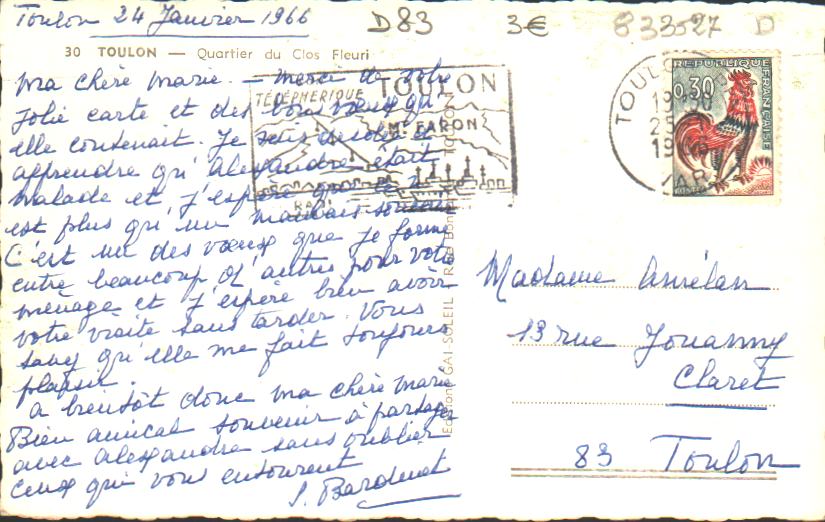 Toulon 24 Janvier 1966
D83
3€
833527 D
30 TOULON — Quartier du Clos Fleuri
Ma chère Marie. — Merci de votre
jolie carte et des bons vœux qu'
elle contenait. Je suis désolée d'
apprendre qu'Alexandre était
malade et j'espère que ce n'
est plus qu'un mauvais souvenir
C'est un des vœux que je forme
entre beaucoup d'autres pour votre
ménage et j'espère bien avoir
votre visite sans tarder. Vous
savez qu'elle me fait toujours
plaisir.
A bientôt donc ma chère Marie
Bien amical souvenir à partager
avec Alexandre sans oublier
ceux qui vous entourent
TÉLÉPHERIQUE TOULON
MT FARON
RADE
Editions GAI-SOLEIL
TOULON
19
VAR
REPUBLIQUE FRANÇAISE
0,30
POSTES
Madame
13 rue Jouanny
Claret
83 Toulon